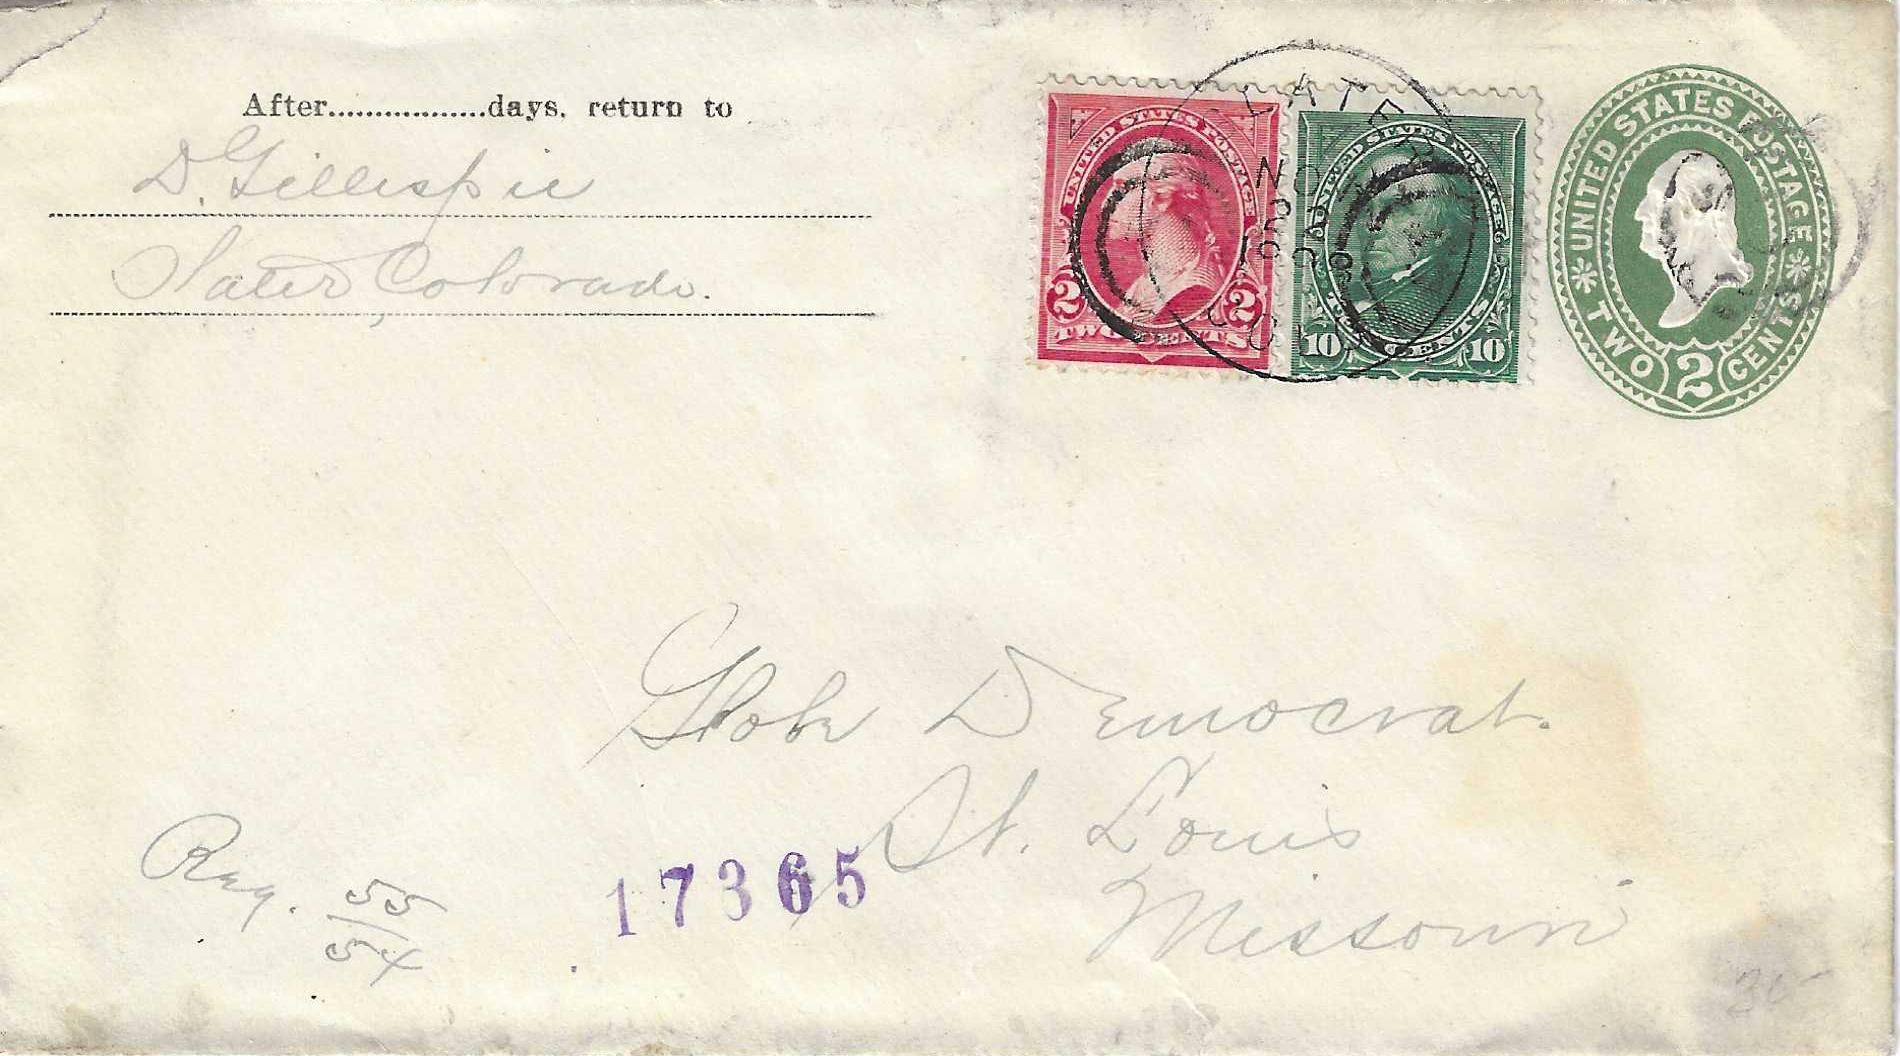 After.................days, return to
D. Gillespie
Slater, Colorado.
UNITED STATES POSTAGE
2 2
TWO CENTS
UNITED STATES POSTAGE
10 10
TEN CENTS
SLATER
NO
COLO
UNITED STATES POSTAGE
TWO 2 CENTS
Globe Democrat.
St. Louis
Missouri
Reg. 55
54
17365